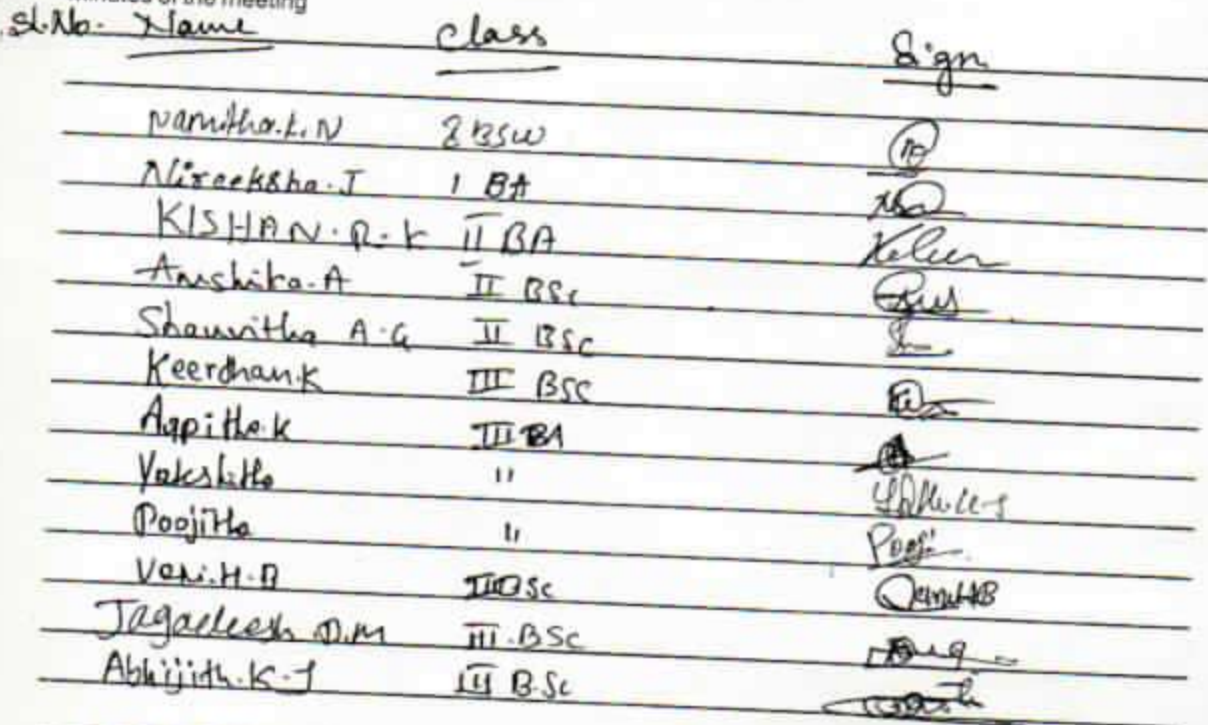 Minutes of the meeting
Sl.No. Name Class Sign
Namitha.L.N 2 BSW
Nireeksha.J 1 BA
KISHAN.R.K II BA
Anshika.A II BSc
Shanvitha A.G II BSc
Keerdhan.K III BSC
Aapithe.K III BA
Yakshitha "
Poojitha " Pooji
Veni.H.B III BSc
Jagadeesh D.M III.BSc
Abhijith.K.J III B.Sc